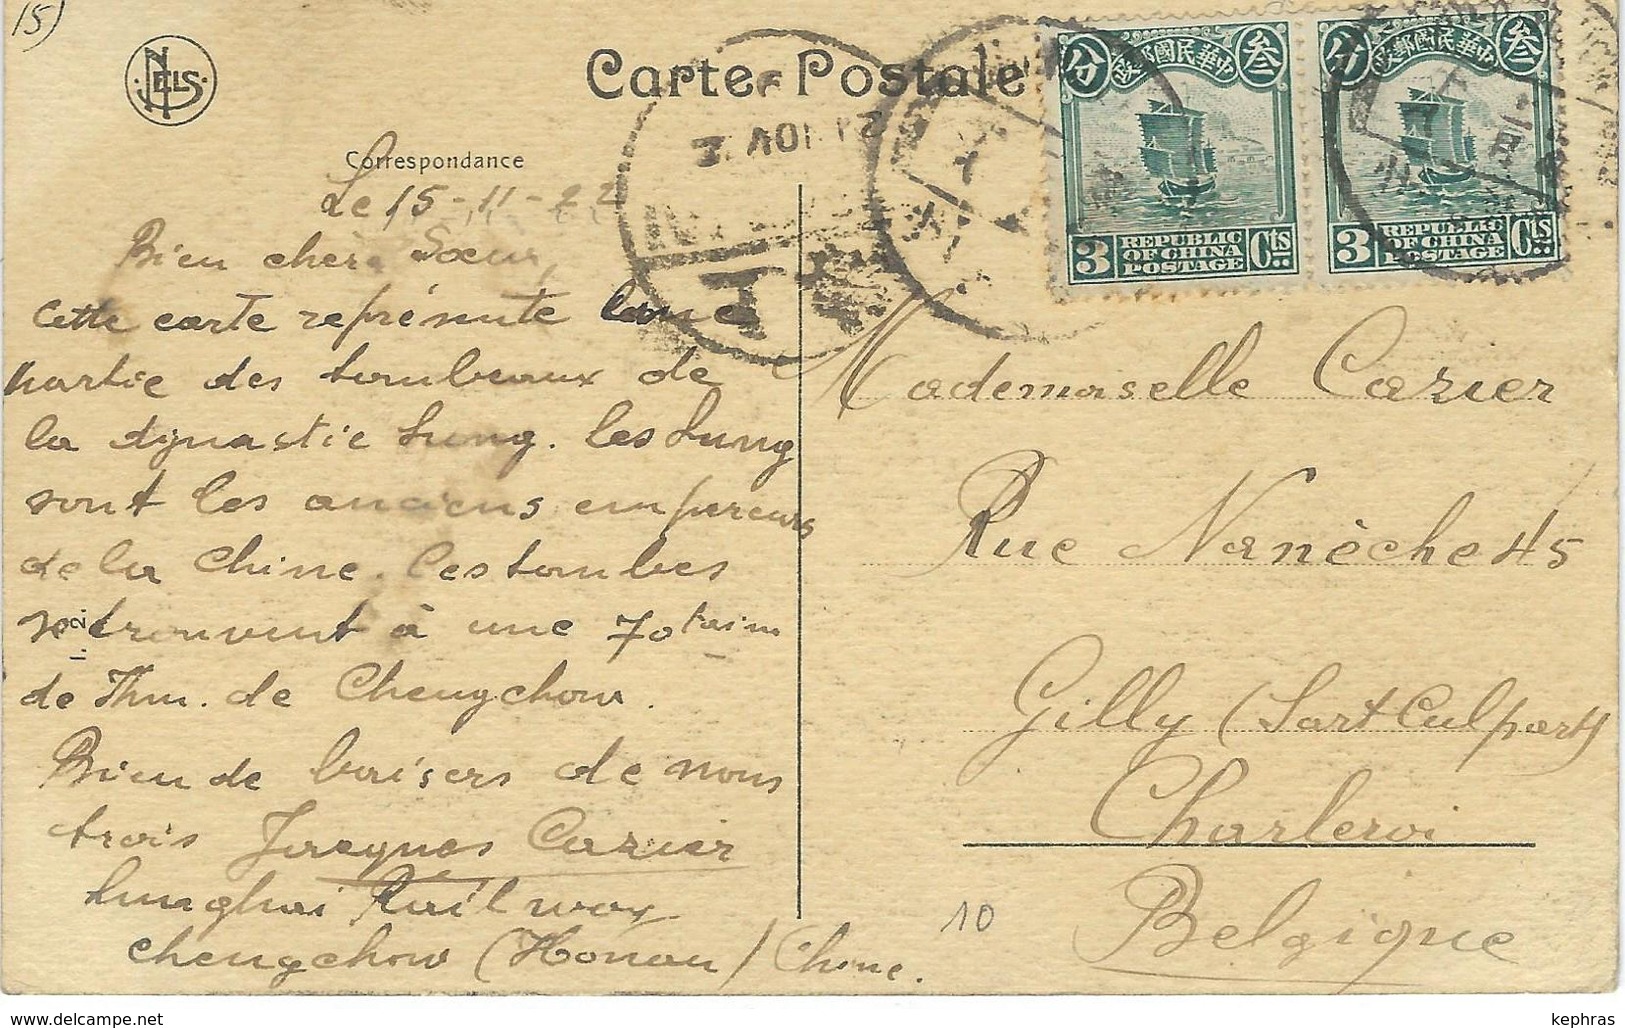 15)
NELS
Carte Postale
Correspondance
Le 15-11-22
Bien chère Soeur,
Cette carte représente une
partie des tombeaux de
la dynastie Sung. Les Sung
sont les anciens empereurs
de la Chine. Ces tombes
se trouvent à une 70taine
de Km. de Chengchow.
Bien de baisers de nous
trois Jacques Cazier
Lunghai Railway
Chengchow (Honan) Chine.
分 中華民國郵政 叁
3 REPUBLIC OF CHINA POSTAGE Cts
分 中華民國郵政 叁
3 REPUBLIC OF CHINA POSTAGE Cts
Mademoiselle Cazier
Rue Nanèche 45
Gilly (Sart Culpart)
Charleroi
Belgique
10
www.delcampe.net
kephras